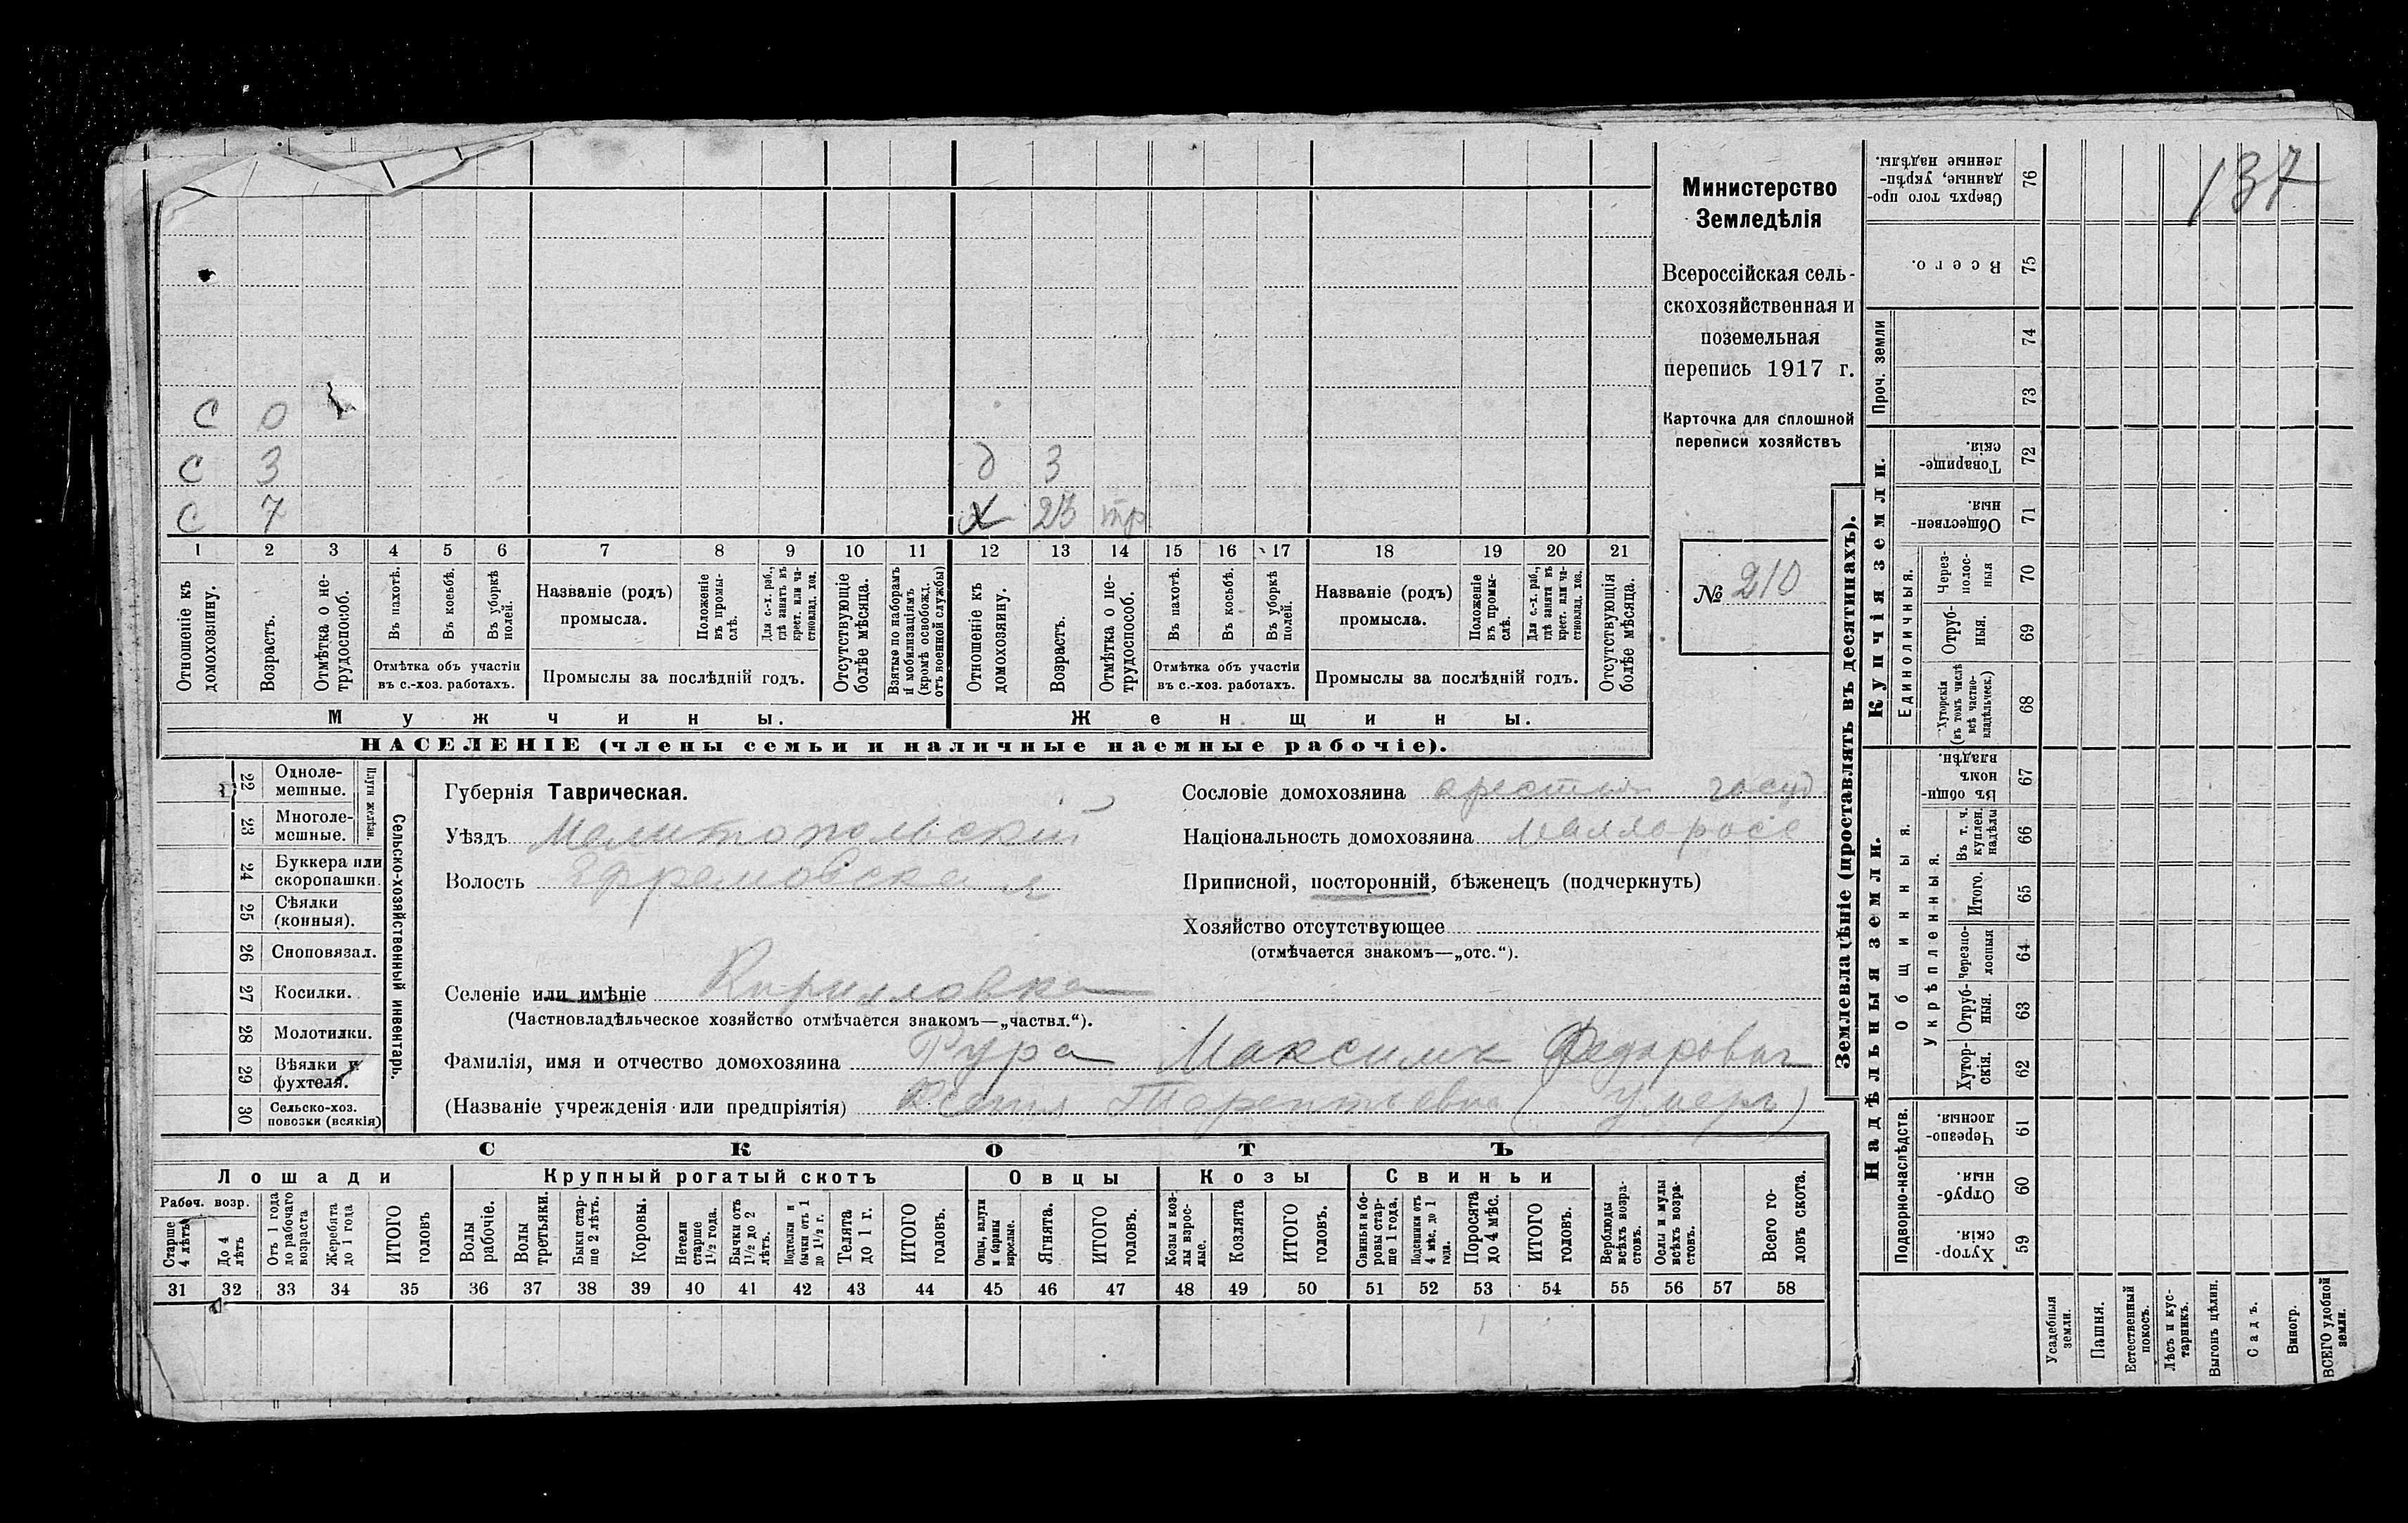 137
Министерство
Земледѣлія
Всероссійская сель-
скохозяйственная и
поземельная
перепись 1917 г.
Карточка для сплошной
переписи хозяйствъ
№ 210
С 0
С 3 д 3
С 7 Х 23 тр
1 2 3 4 5 6 7 8 9 10 11 12 13 14 15 16 17 18 19 20 21
Отношеніе къ домохозяину.
Возрастъ.
Отмѣтка о не-трудоспособ.
Въ пахотѣ.
Въ косьбѣ.
Въ уборкѣ полей.
Отмѣтка объ участіи
въ с.-хоз. работахъ.
Названіе (родъ)
промысла.
Положеніе въ промы-слѣ.
Для с.-х. раб., гдѣ занятъ въ крест. или ча-стновлад. хоз.
Промыслы за послѣдній годъ.
Отсутствующіе болѣе мѣсяца.
Взятые по наборамъ и мобилизаціямъ (кромѣ освобожд. отъ военной службы)
Отношеніе къ домохозяину.
Возрастъ.
Отмѣтка о не-трудоспособ.
Въ пахотѣ.
Въ косьбѣ.
Въ уборкѣ полей.
Отмѣтка объ участіи
въ с.-хоз. работахъ.
Названіе (родъ)
промысла.
Положеніе въ промы-слѣ.
Для с.-х. раб., гдѣ заняты въ крест. или ча-стновлад. хоз.
Промыслы за послѣдній годъ.
Отсутствующія болѣе мѣсяца.
Мужчины. Женщины.
НАСЕЛЕНІЕ (члены семьи и наличные наемные рабочіе).
Сельско-хозяйственный инвентарь.
Плуги желѣзн.
22 Одноле-мешные.
23 Многоле-мешные.
24 Буккера или скоропашки.
25 Сѣялки (конныя).
26 Сноповязал.
27 Косилки.
28 Молотилки.
29 Вѣялки и фухтеля.
30 Сельско-хоз. повозки (всякія)
Губернія Таврическая.
Уѣздъ Мелитопольскій
Волость Ефремовская
Селеніе или имѣніе Кирилловка
(Частновладѣльческое хозяйство отмѣчается знакомъ—„частвл.“).
Фамилія, имя и отчество домохозяина Рура Максимъ Федоровичъ
(Названіе учрежденія или предпріятія) Ксенія Терентьевна (умеръ)
Сословіе домохозяина госуд
Національность домохозяина
Приписной, посторонній, бѣженецъ (подчеркнуть)
Хозяйство отсутствующее
(отмѣчается знакомъ—„отс.“).
СКОТЪ
Лошади Крупный рогатый скотъ Овцы Козы Свиньи
Рабоч. возр.
Старше 4 лѣтъ
До 4 лѣтъ
Отъ 1 года до рабочаго возраста
Жеребята до 1 года
ИТОГО головъ
Волы рабочіе.
Волы третьяки.
Быки стар-ше 2 лѣтъ.
Коровы.
Нетели старше 1½ года.
Бычки отъ 1½ до 2 лѣтъ.
Подтелки и бычки отъ 1 до 1½ г.
Телята до 1 г.
ИТОГО головъ.
Овцы, валухи и бараны взрослые.
Ягнята.
ИТОГО головъ.
Козы и коз-лы взрос-лые.
Козлята
ИТОГО головъ.
Свиньи и бо-ровы стар-ше 1 года.
Подсвинки отъ 4 мѣс. до 1 года.
Поросята до 4 мѣс.
ИТОГО головъ.
Верблюды всѣхъ возра-стовъ.
Ослы и мулы всѣхъ возра-стовъ.
Всего го-ловъ скота.
31 32 33 34 35 36 37 38 39 40 41 42 43 44 45 46 47 48 49 50 51 52 53 54 55 56 57 58
Землевладѣніе (проставлять въ десятинахъ).
Купчія земли.
Надѣльныя земли.
Сверхъ того про-данные, укрѣп-ленные надѣлы. 76
Всего. 75
Проч. земли
74
73
Товарище-скія. 72
Обществен-ныя. 71
Единоличныя.
Через-полос-ныя 70
Отруб-ныя. 69
Хуторскія (въ томъ числѣ всѣ частно-владѣльческ.) 68
Общинныя.
Въ общин-номъ владѣн. 67
Укрѣпленныя.
Въ т. ч. куплен. надѣлы 66
Итого. 65
Черезпо-лосныя 64
Отруб-ныя. 63
Хутор-скія. 62
Подворно-наслѣдств.
Черезпо-лосныя. 61
Отруб-ныя. 60
Хутор-скія. 59
Усадебныя земли.
Пашня.
Естественный покосъ.
Лѣсъ и кус-тарникъ.
Выгонъ цѣлин.
Садъ.
Виногр.
ВСЕГО удобной земли.